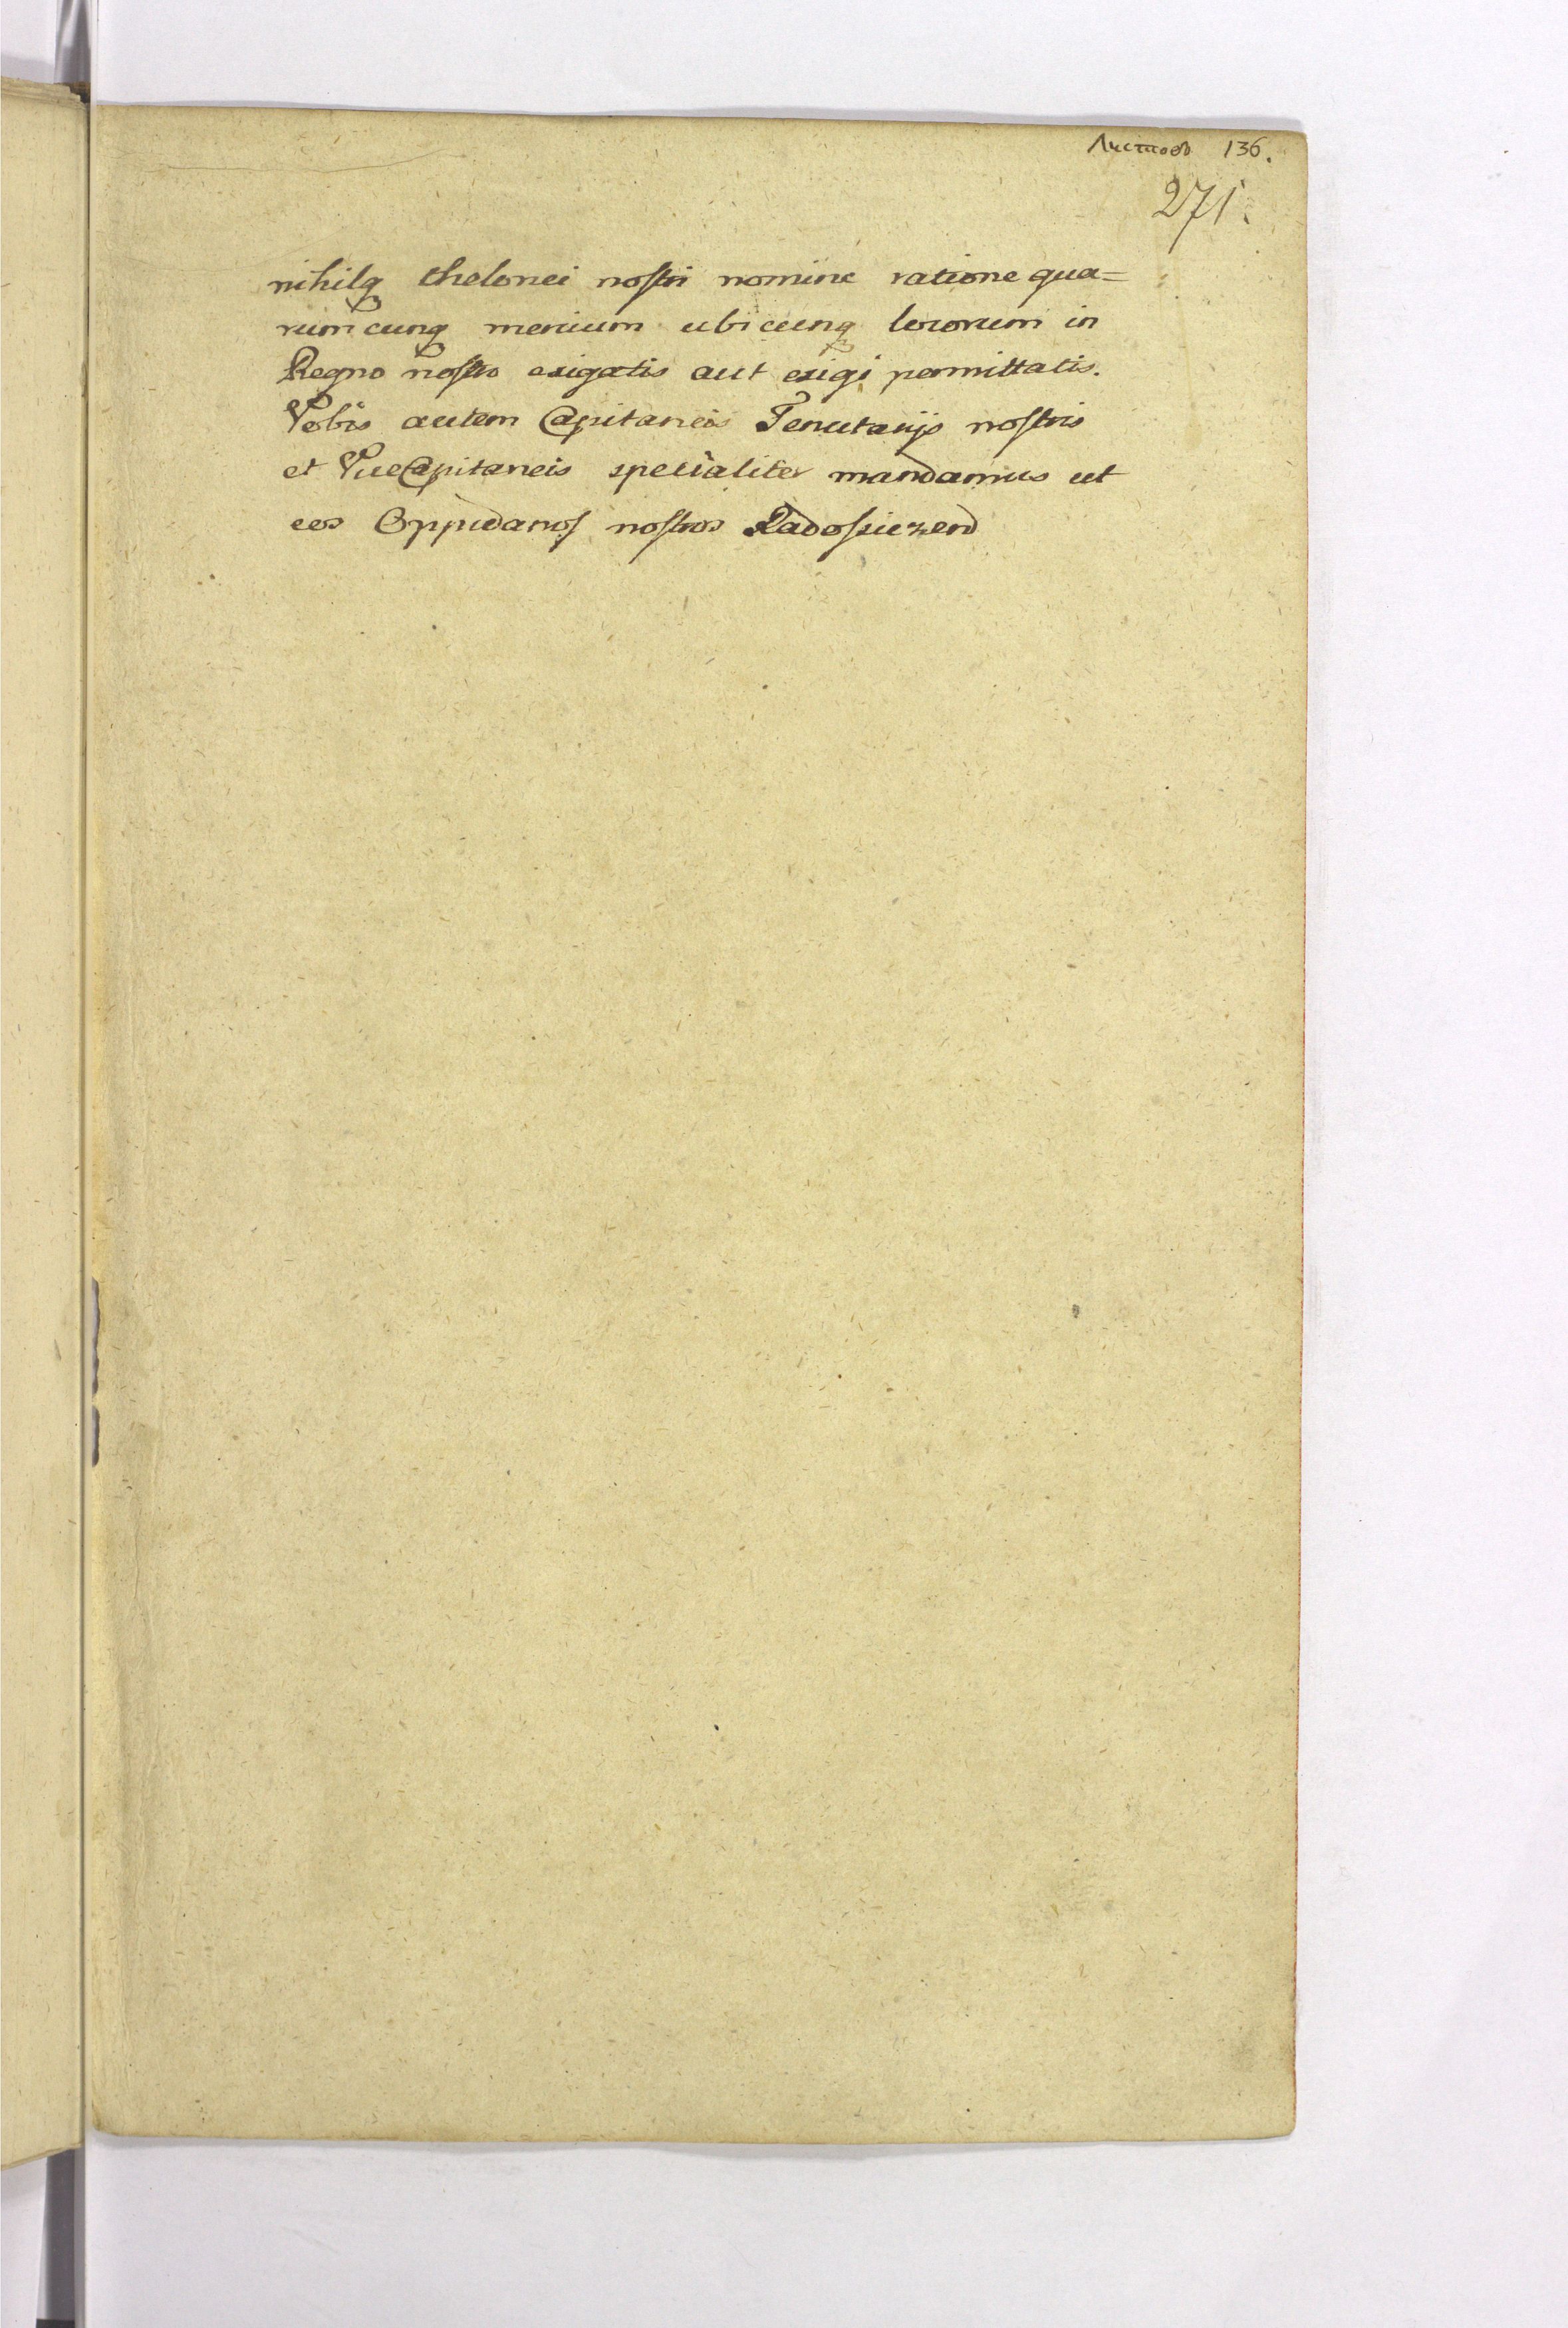 Листовъ 136.
271.
nihilq thelonei nostri nomine ratione qua=
rumcunq mercium ubicunq locorum in
Regno nostro exigatis aut exigi permittatis.
Vobis autem Capitaneis Tenutarijs nostris
et ViceCapitaneis specialiter mandamus ut
eos Oppidanos nostros Radossicen